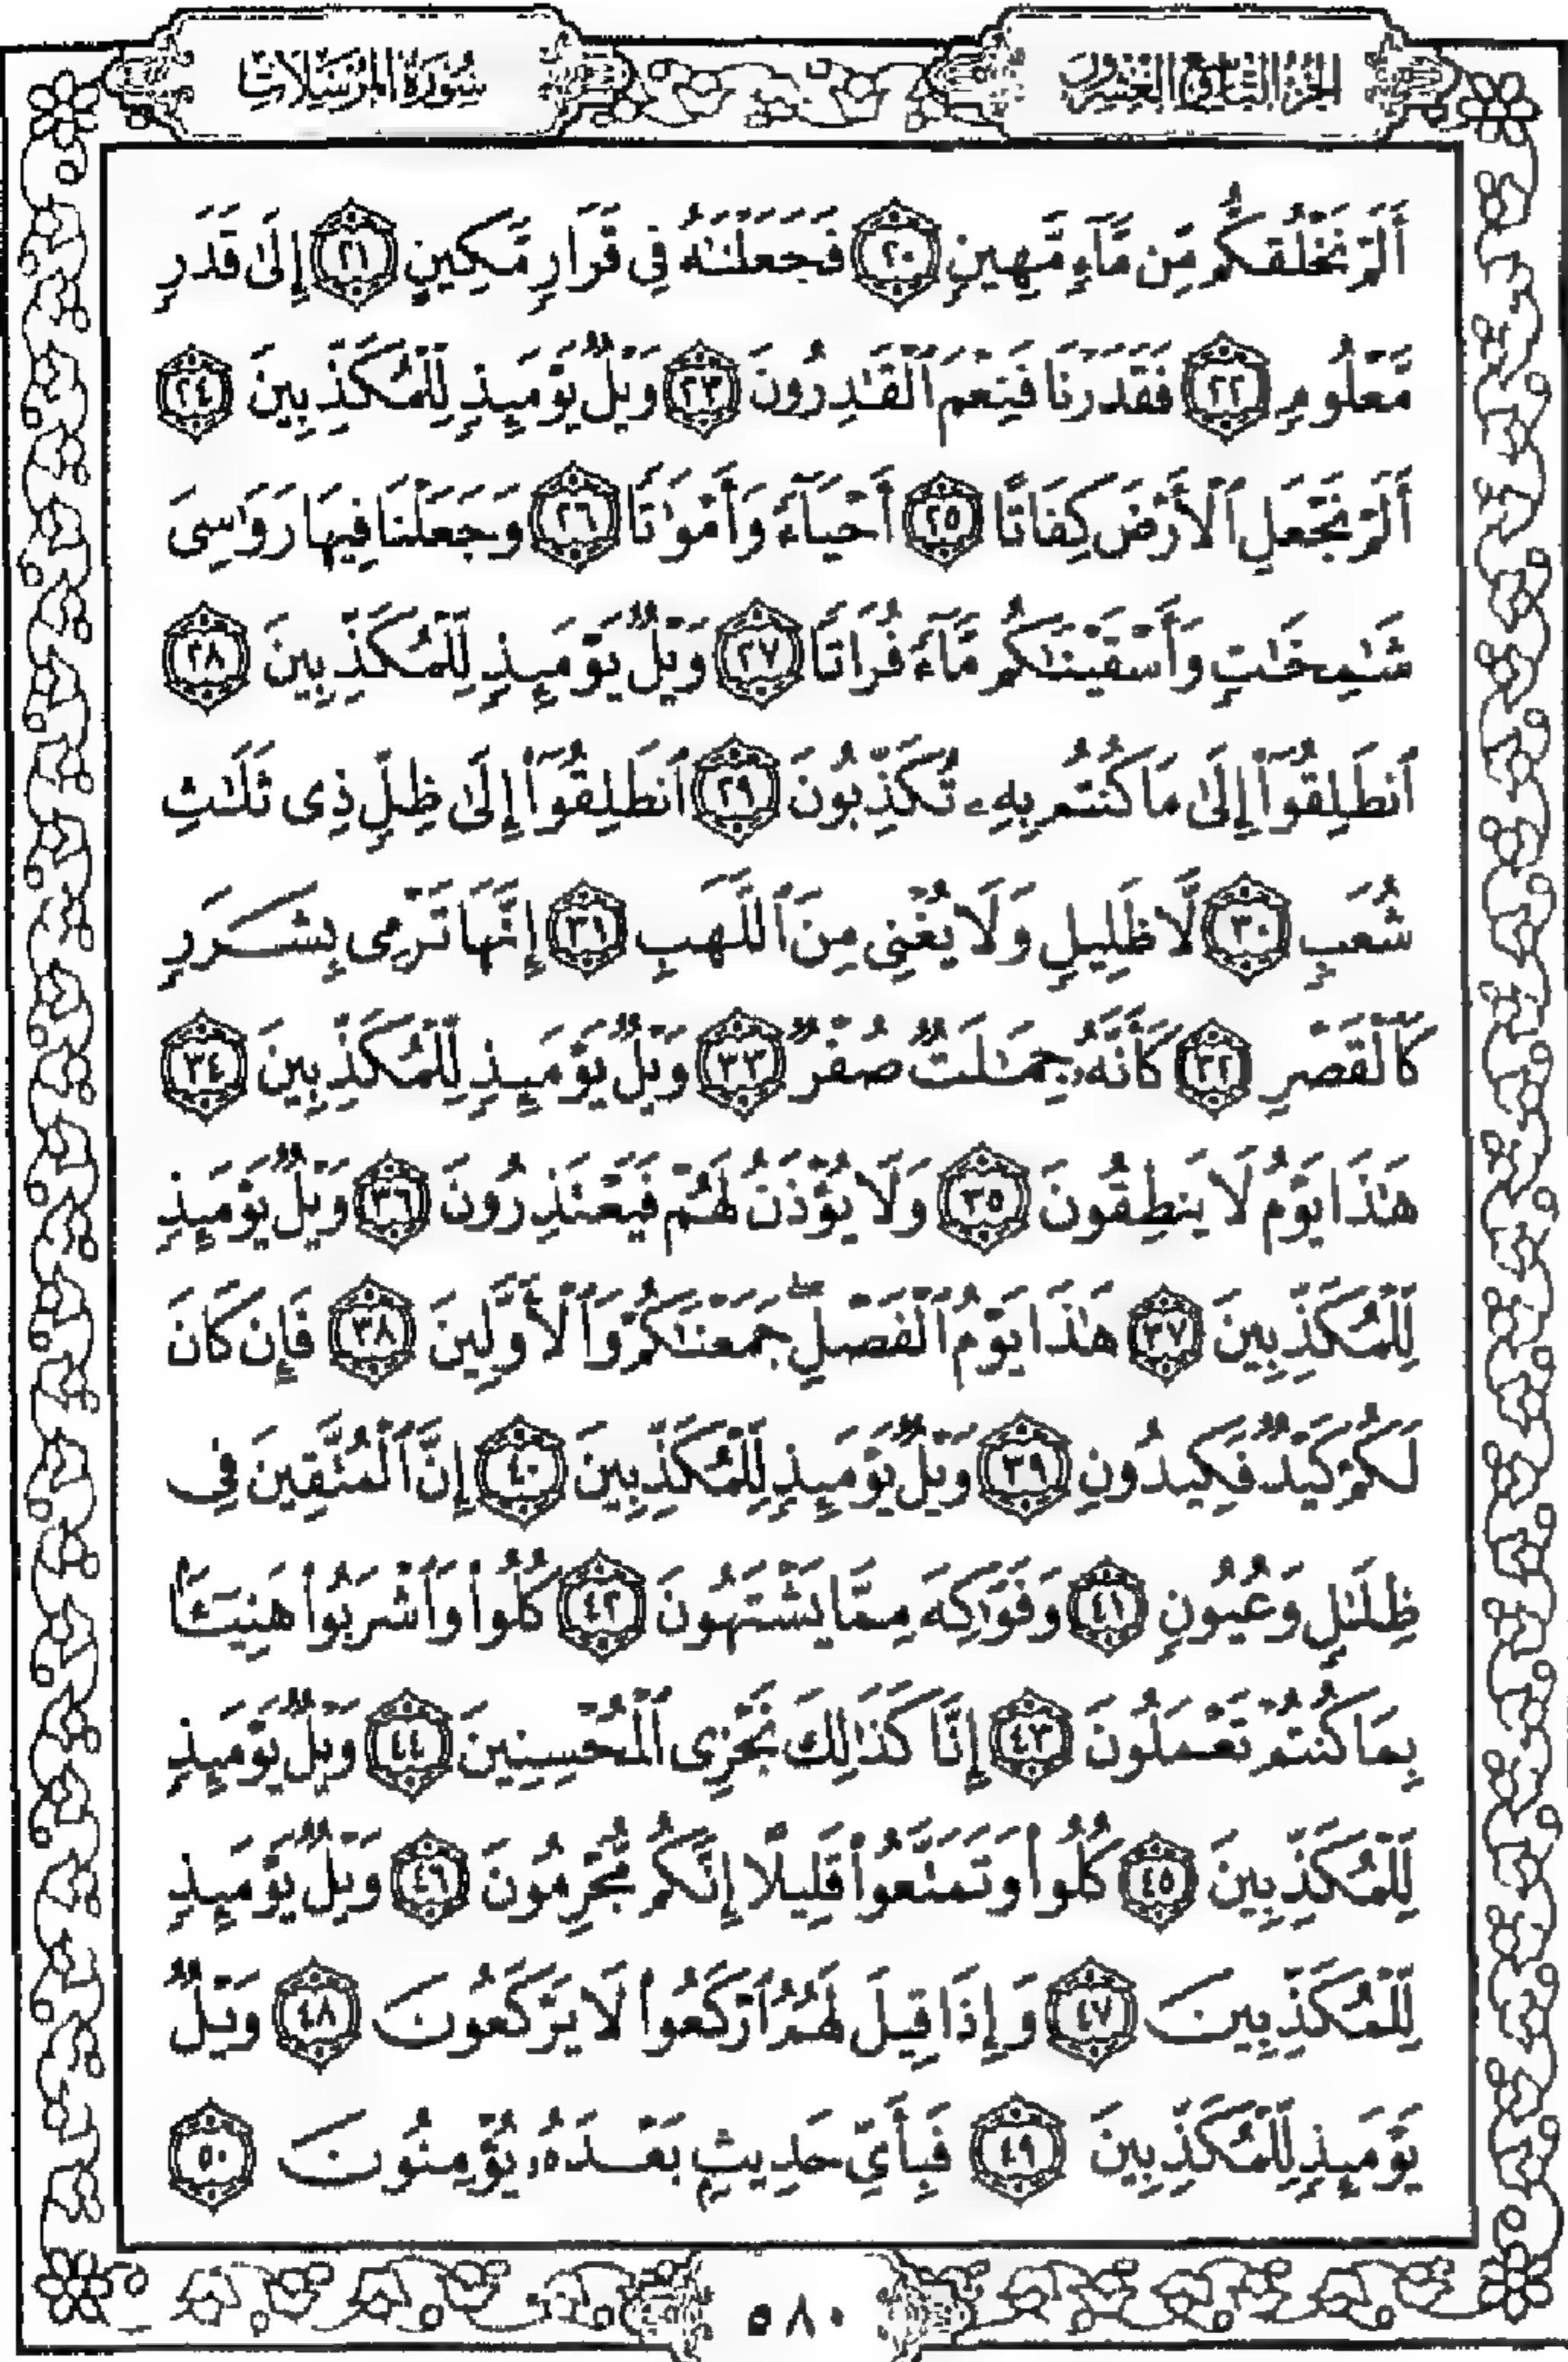 الجزء التاسع والعشرون
سورة المرسلات
أَلَمْ نَخْلُقكُّم مِّن مَّآءٍ مَّهِينٍ ٢٠ فَجَعَلْنَٰهُ فِى قَرَارٍ مَّكِينٍ ٢١ إِلَىٰ قَدَرٍ
مَّعْلُومٍ ٢٢ فَقَدَرْنَا فَنِعْمَ ٱلْقَٰدِرُونَ ٢٣ وَيْلٌ يَوْمَئِذٍ لِّلْمُكَذِّبِينَ ٢٤
أَلَمْ نَجْعَلِ ٱلْأَرْضَ كِفَاتًا ٢٥ أَحْيَآءً وَأَمْوَٰتًا ٢٦ وَجَعَلْنَا فِيهَا رَوَٰسِىَ
شَٰمِخَٰتٍ وَأَسْقَيْنَٰكُم مَّآءً فُرَاتًا ٢٧ وَيْلٌ يَوْمَئِذٍ لِّلْمُكَذِّبِينَ ٢٨
ٱنطَلِقُوٓا۟ إِلَىٰ مَا كُنتُم بِهِۦ تُكَذِّبُونَ ٢٩ ٱنطَلِقُوٓا۟ إِلَىٰ ظِلٍّ ذِى ثَلَٰثِ
شُعَبٍ ٣٠ لَّا ظَلِيلٍ وَلَا يُغْنِى مِنَ ٱللَّهَبِ ٣١ إِنَّهَا تَرْمِى بِشَرَرٍ
كَٱلْقَصْرِ ٣٢ كَأَنَّهُۥ جِمَٰلَتٌ صُفْرٌ ٣٣ وَيْلٌ يَوْمَئِذٍ لِّلْمُكَذِّبِينَ ٣٤
هَٰذَا يَوْمُ لَا يَنطِقُونَ ٣٥ وَلَا يُؤْذَنُ لَهُمْ فَيَعْتَذِرُونَ ٣٦ وَيْلٌ يَوْمَئِذٍ
لِّلْمُكَذِّبِينَ ٣٧ هَٰذَا يَوْمُ ٱلْفَصْلِ ۖ جَمَعْنَٰكُمْ وَٱلْأَوَّلِينَ ٣٨ فَإِن كَانَ
لَكُمْ كَيْدٌ فَكِيدُونِ ٣٩ وَيْلٌ يَوْمَئِذٍ لِّلْمُكَذِّبِينَ ٤٠ إِنَّ ٱلْمُتَّقِينَ فِى
ظِلَٰلٍ وَعُيُونٍ ٤١ وَفَوَٰكِهَ مِمَّا يَشْتَهُونَ ٤٢ كُلُوا۟ وَٱشْرَبُوا۟ هَنِيٓـًٔۢا
بِمَا كُنتُمْ تَعْمَلُونَ ٤٣ إِنَّا كَذَٰلِكَ نَجْزِى ٱلْمُحْسِنِينَ ٤٤ وَيْلٌ يَوْمَئِذٍ
لِّلْمُكَذِّبِينَ ٤٥ كُلُوا۟ وَتَمَتَّعُوا۟ قَلِيلًا إِنَّكُم مُّجْرِمُونَ ٤٦ وَيْلٌ يَوْمَئِذٍ
لِّلْمُكَذِّبِينَ ٤٧ وَإِذَا قِيلَ لَهُمُ ٱرْكَعُوا۟ لَا يَرْكَعُونَ ٤٨ وَيْلٌ
يَوْمَئِذٍ لِّلْمُكَذِّبِينَ ٤٩ فَبِأَىِّ حَدِيثٍۭ بَعْدَهُۥ يُؤْمِنُونَ ٥٠
٥٨٠